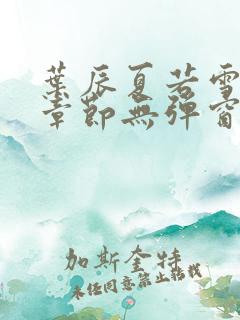 葉辰夏若雪
章節無彈窗
加斯奎特
未經同意禁止轉載